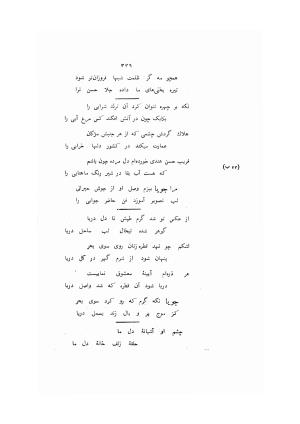 ۳۳۹
همچو مه گر ظلمت شبها فروزان‌تو شود
تیره بختی‌های ما داده جلا حسن ترا
نگه بر چهره نتوان کرد آن ترک شرابی را
چون در آتش افکند کسی مرغ آبی را
هلاک گردش چشمی که از هر جنبش مژگان
عمارت میکند در کشور دلها خرابی را
فریب حسن هندی خورده‌ام دل مرده چون باشم
(۲۲ ب)
که هست آب بقا در شیر رنگ ماهتابی را
مرا جویا ببزم وصل او از جوش حیرانی
لب تصویر آموزد فن حاضر جوابی را
از عکس تو شد گرم طپش تا دل دریا
گوهر شده تبخال لب ساحل دریا
اشکم چو شود قطره زنان روی سوی بحر
پنهان شود از شرم گهر در گل دریا
هر ذره‌ام آیینهٔ معشوق نماییست
دریا شود آن قطره که شد واصل دریا
جویا نگه گرم که رو کرد سوی بحر
کز موج پر و بال زند بسمل دریا
چشم او آشیانهٔ دل ما
حلقهٔ زلف خانهٔ دل ما